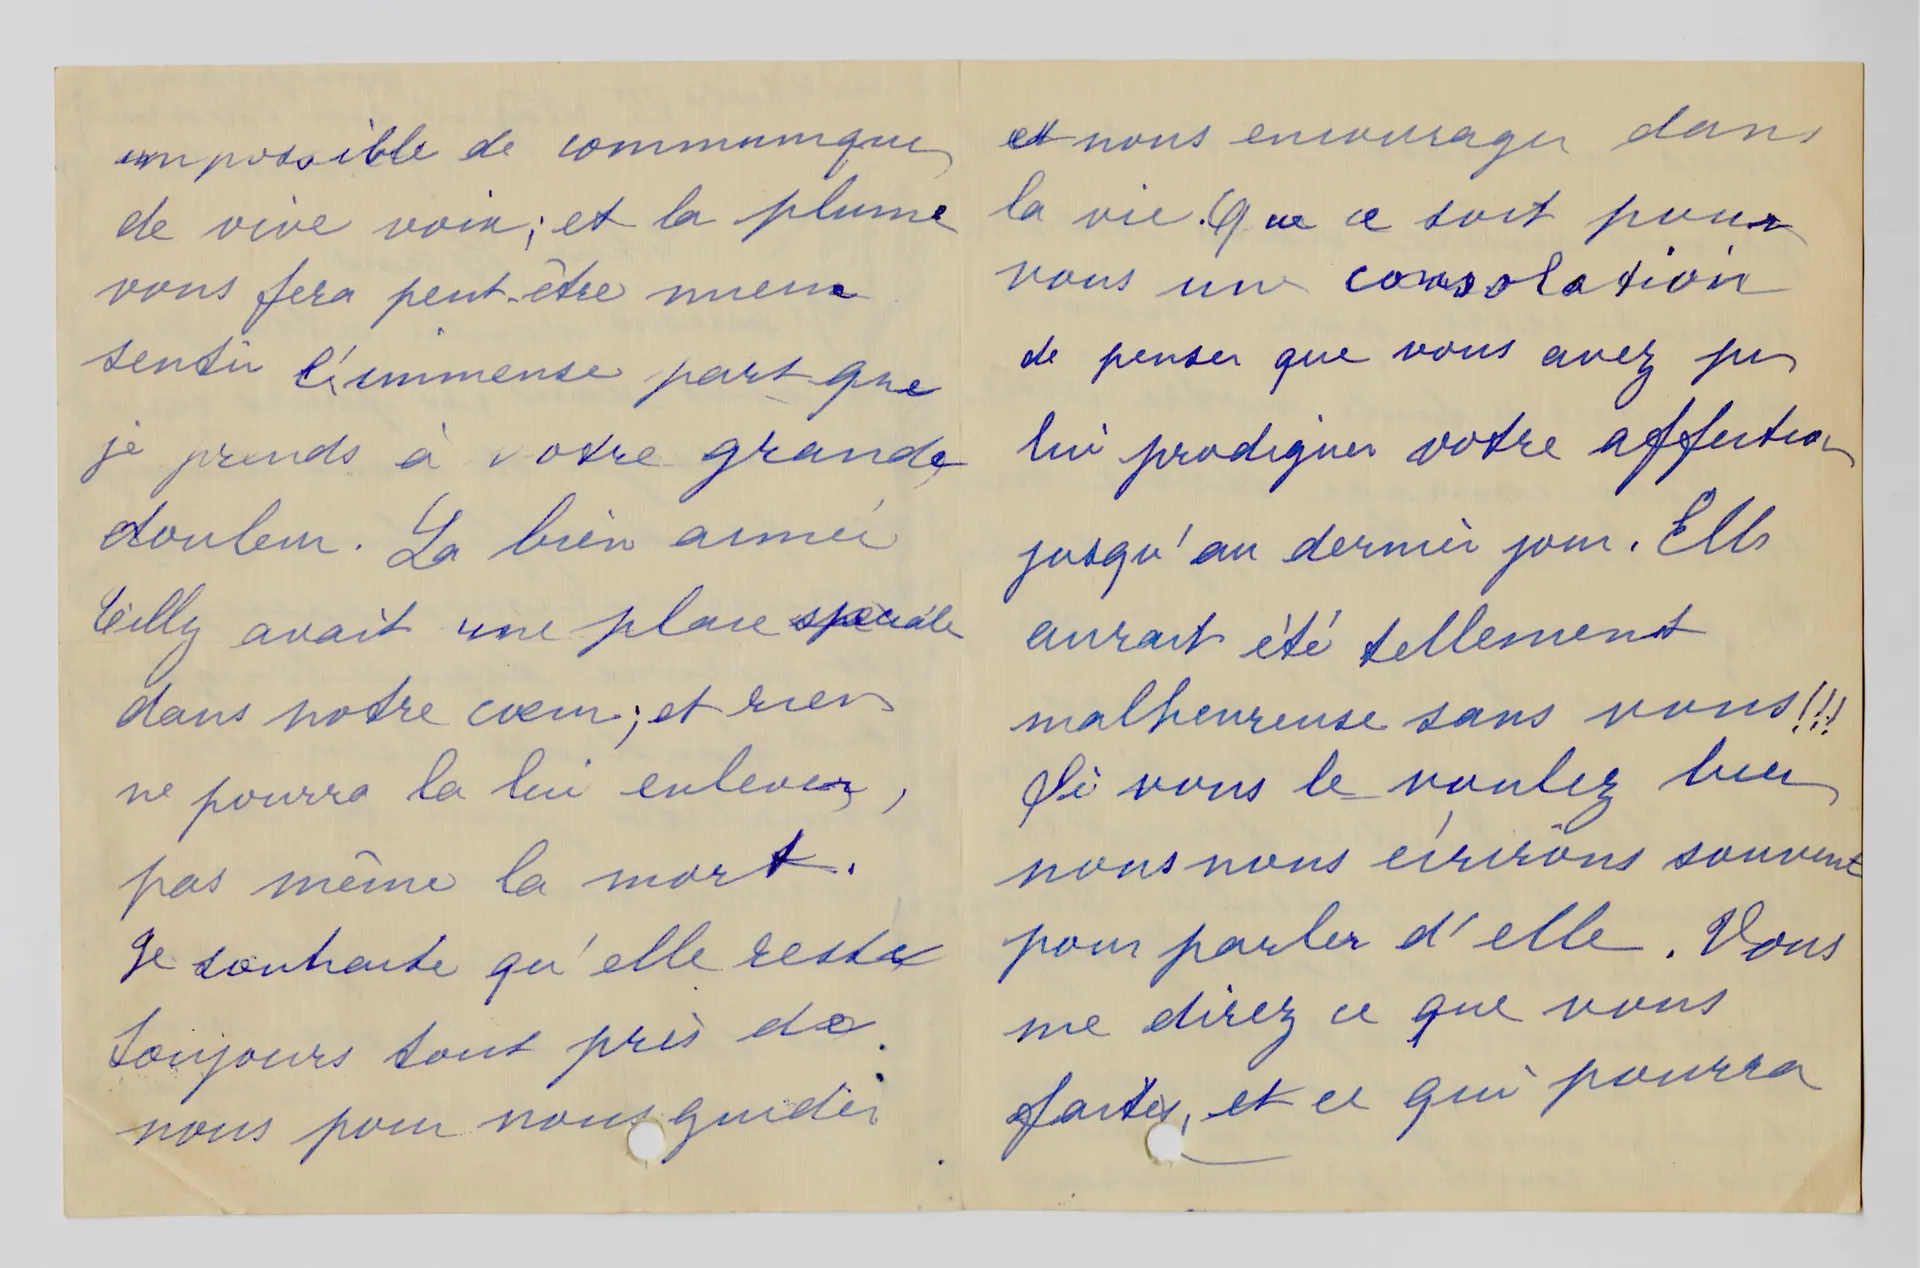 impossible de communiquer
de vive voix; et la plume
vous fera peut-être mieux
sentir l'immense part que
je prends à votre grande
douleur. La bien aimée
Cilly avait une place spéciale
dans notre cœur; et rien
ne pourra la lui enlever,
pas même la mort.
Je souhaite qu'elle reste
toujours tout près de
nous pour nous guider
et nous encourager dans
la vie. Que ce soit pour
vous une consolation
de penser que vous avez pu
lui prodiguer votre affection
jusqu'au dernier jour. Elle
aurait été tellement
malheureuse sans vous!!!
Si vous le voulez bien
nous nous écrirons souvent
pour parler d'elle. Vous
me direz ce que vous
faites, et ce qui pourra